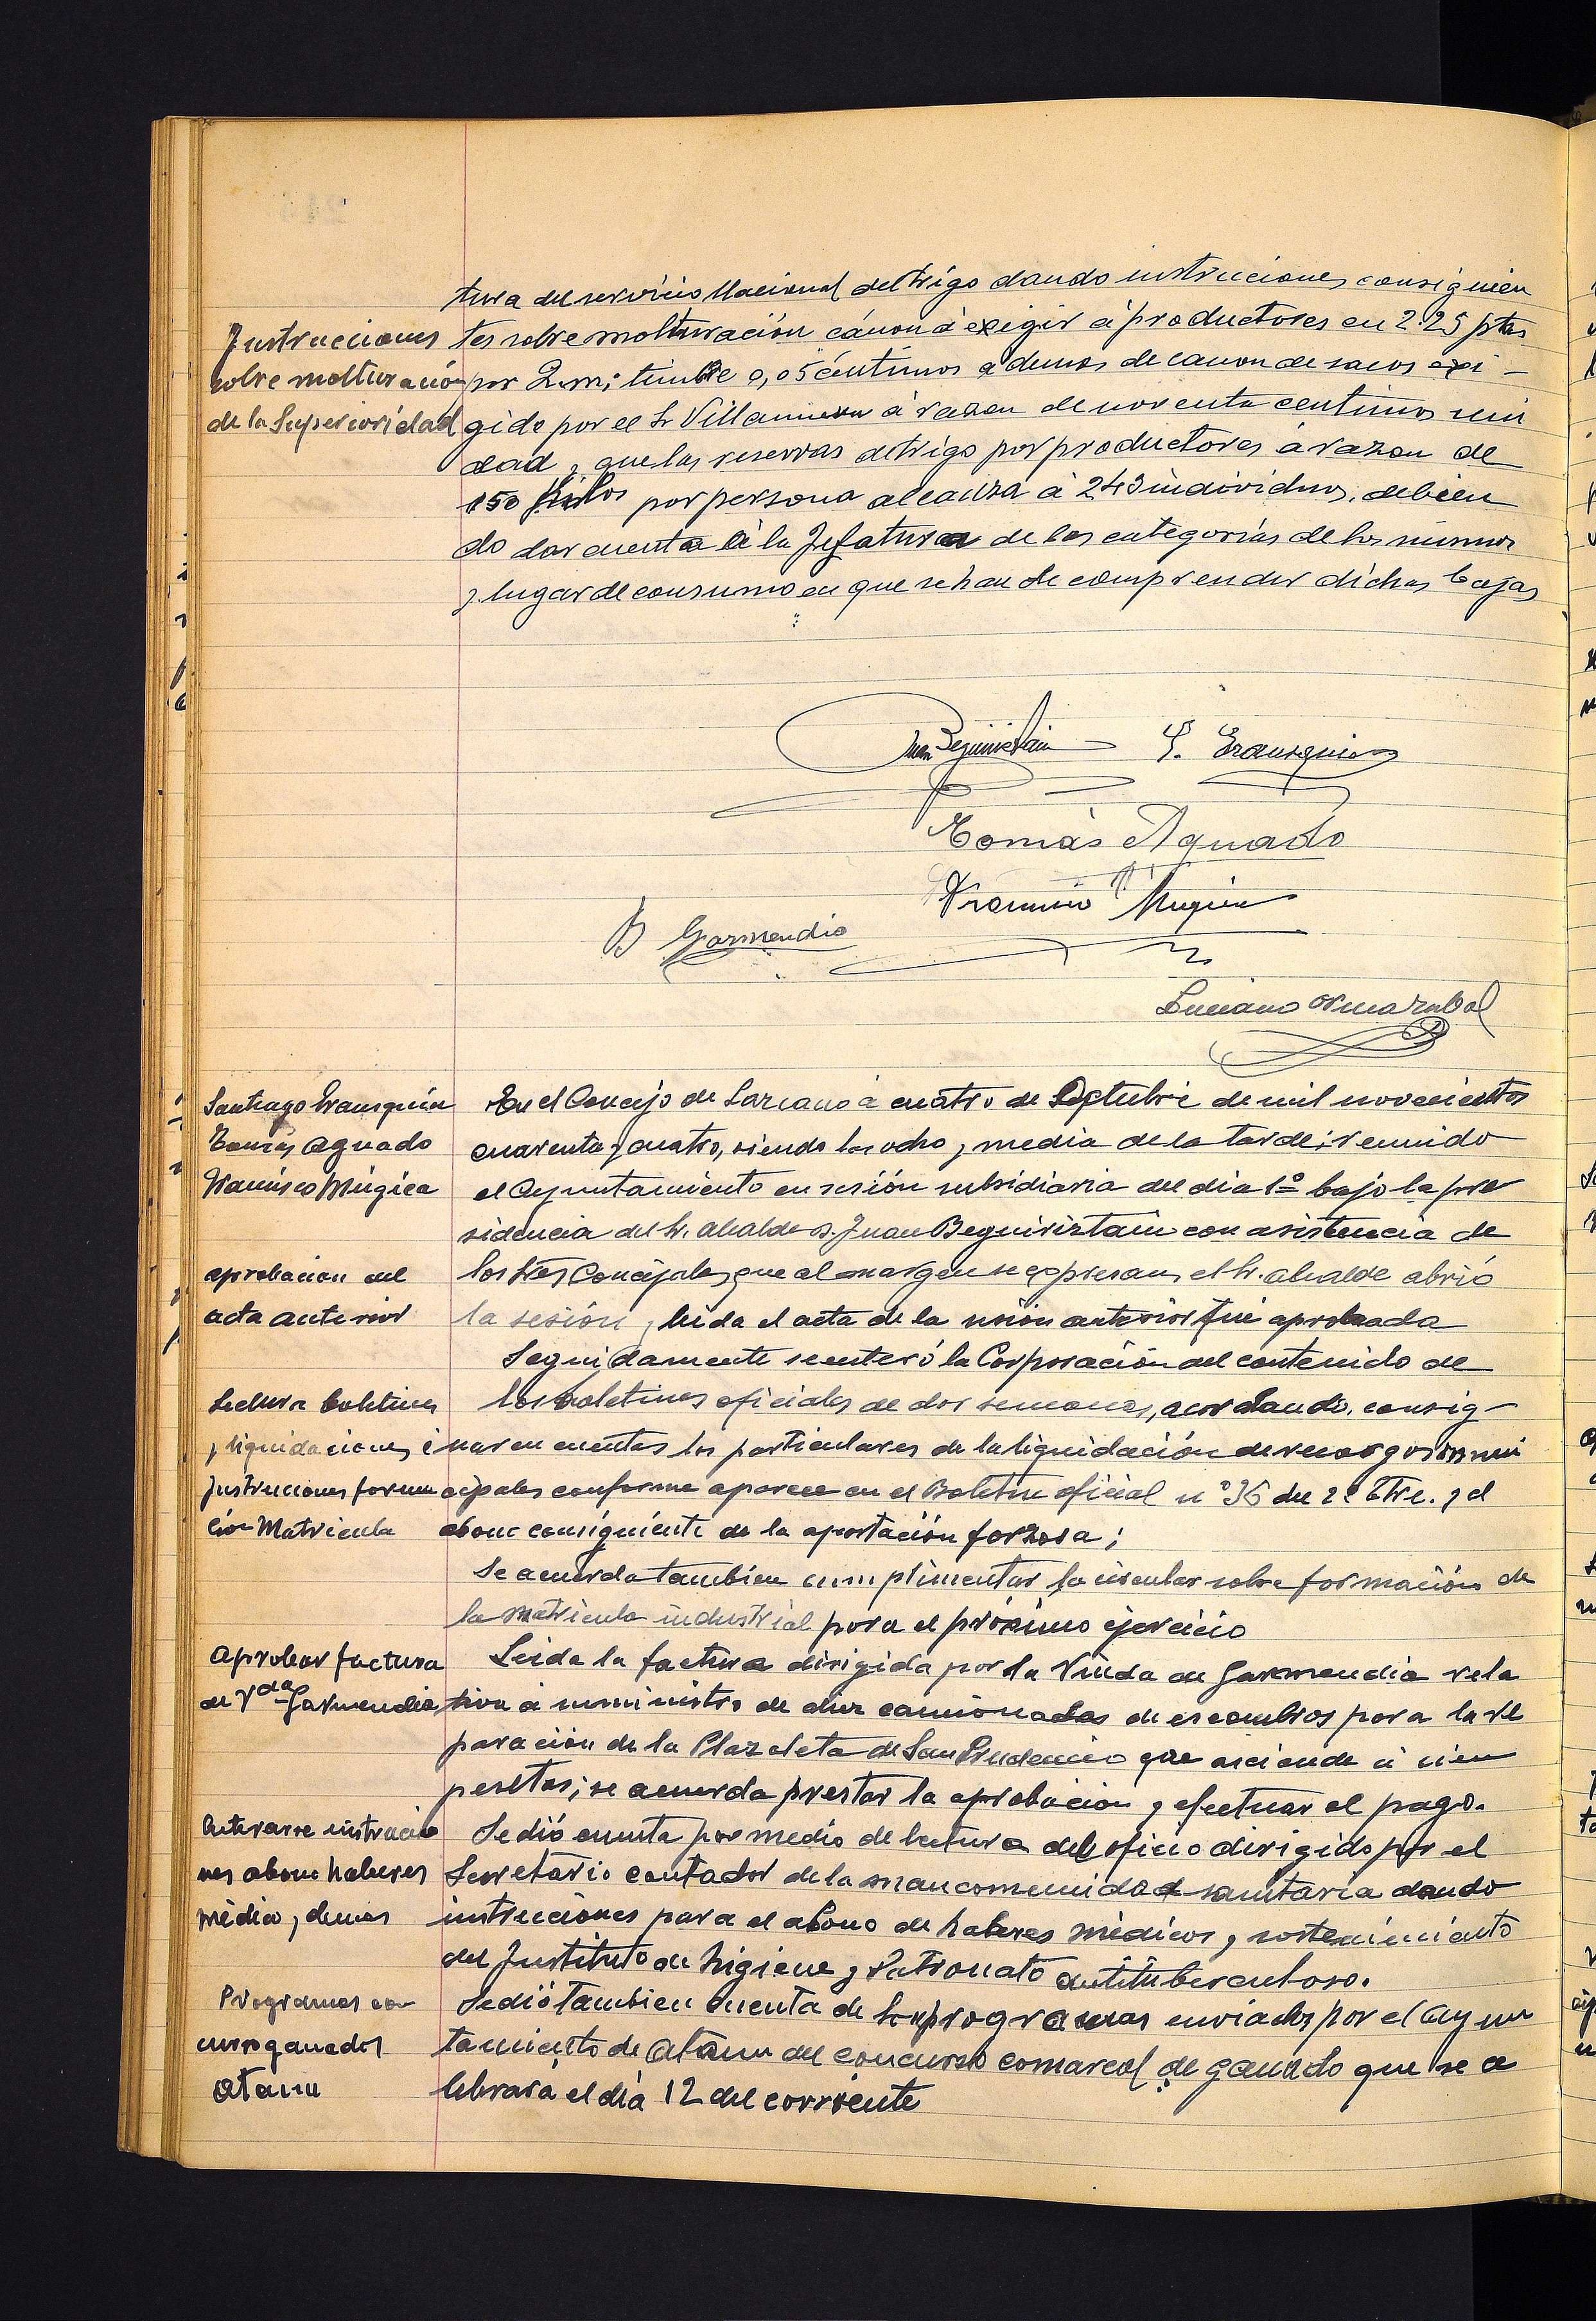 Instrucciones
sobre molturación
de la Superioridad
tura del servicio Nacional del trigo dando instrucciones consiguien
tes sobre molturación cánon á exigir á productores en 2.25 ptas
por Q.m; timbre 0,05 céntimos ademas de canon de sacos exi-
gido por el Sr Villanueva á razon de noventa centimos uni
dad y que las reservas de trigo por productores á razon de
150 kilos por persona alcanza á 243 individuos, debien
do dar cuenta á la Jefatura de las categorías de los mismos
y lugar de consumo en que se han de comprender dichas bajas
Juan Beguiristain
S. Erausquin
Tomás Aguado
Francisco Mugica
B Garmendia
Luciano Ormazabal
Santiago Erausquin
Tomás Aguado
Francisco Múgica
En el Concejo de Lazcano á cuatro de Octubre de mil novecientos
cuarenta y cuatro, siendo las ocho y media de la tarde; reunido
el Ayuntamiento en sesión subsidiaria del dia 1º bajo la pre
sidencia del Sr. alcalde D. Juan Beguiriztain con asistencia de
aprobacion del
acta anterior
los Sres Concejales que al margen se expresan, el Sr. alcalde abrió
la sesión y leida el acta de la sesión anterior fué aprobada
Seguidamente se enteró la Corporación del contenido de
Lectura boletines
y liquidaciones é
Instrucciones forma
ción Matricula
los boletines oficiales de dos semanas, acordando, consig-
nar en cuentas los particulares de la liquidación de recargos muni
cipales conforme aparece en el Boletin oficial nº 36 del 2º Etre. y el
abono consiguiente de la aportación forzosa;
Se acuerda tambien cumplimentar la circular sobre formación de
la matricula industrial para el próximo ejercicio
Aprobar factura
de Vda Garmendia
Leida la factura dirigida por la Viuda de Garmendia rela
tiva á suministro de diez camionadas de escombros para la re
paración de la Plazoleta de San Prudencio que asciende á cien
pesetas; se acuerda prestar la aprobacion y efectuar el pago.
Enterarse instruccio
nes abono haberes
médico y demas
Se dió cuenta por medio de lectura del oficio dirigido por el
Secretario contador de la mancomunidad sanitaria dando
instrucciones para el abono de haberes médicos y sostenimiento
del Instituto de higiene y Patronato antituberculoso.
Programas con
curso ganados
Ataun
Se dió tambien cuenta de los programas enviados por el Ayun
tamiento de Ataun del concurso comarcal de ganado que se ce
lebrará el día 12 del corriente